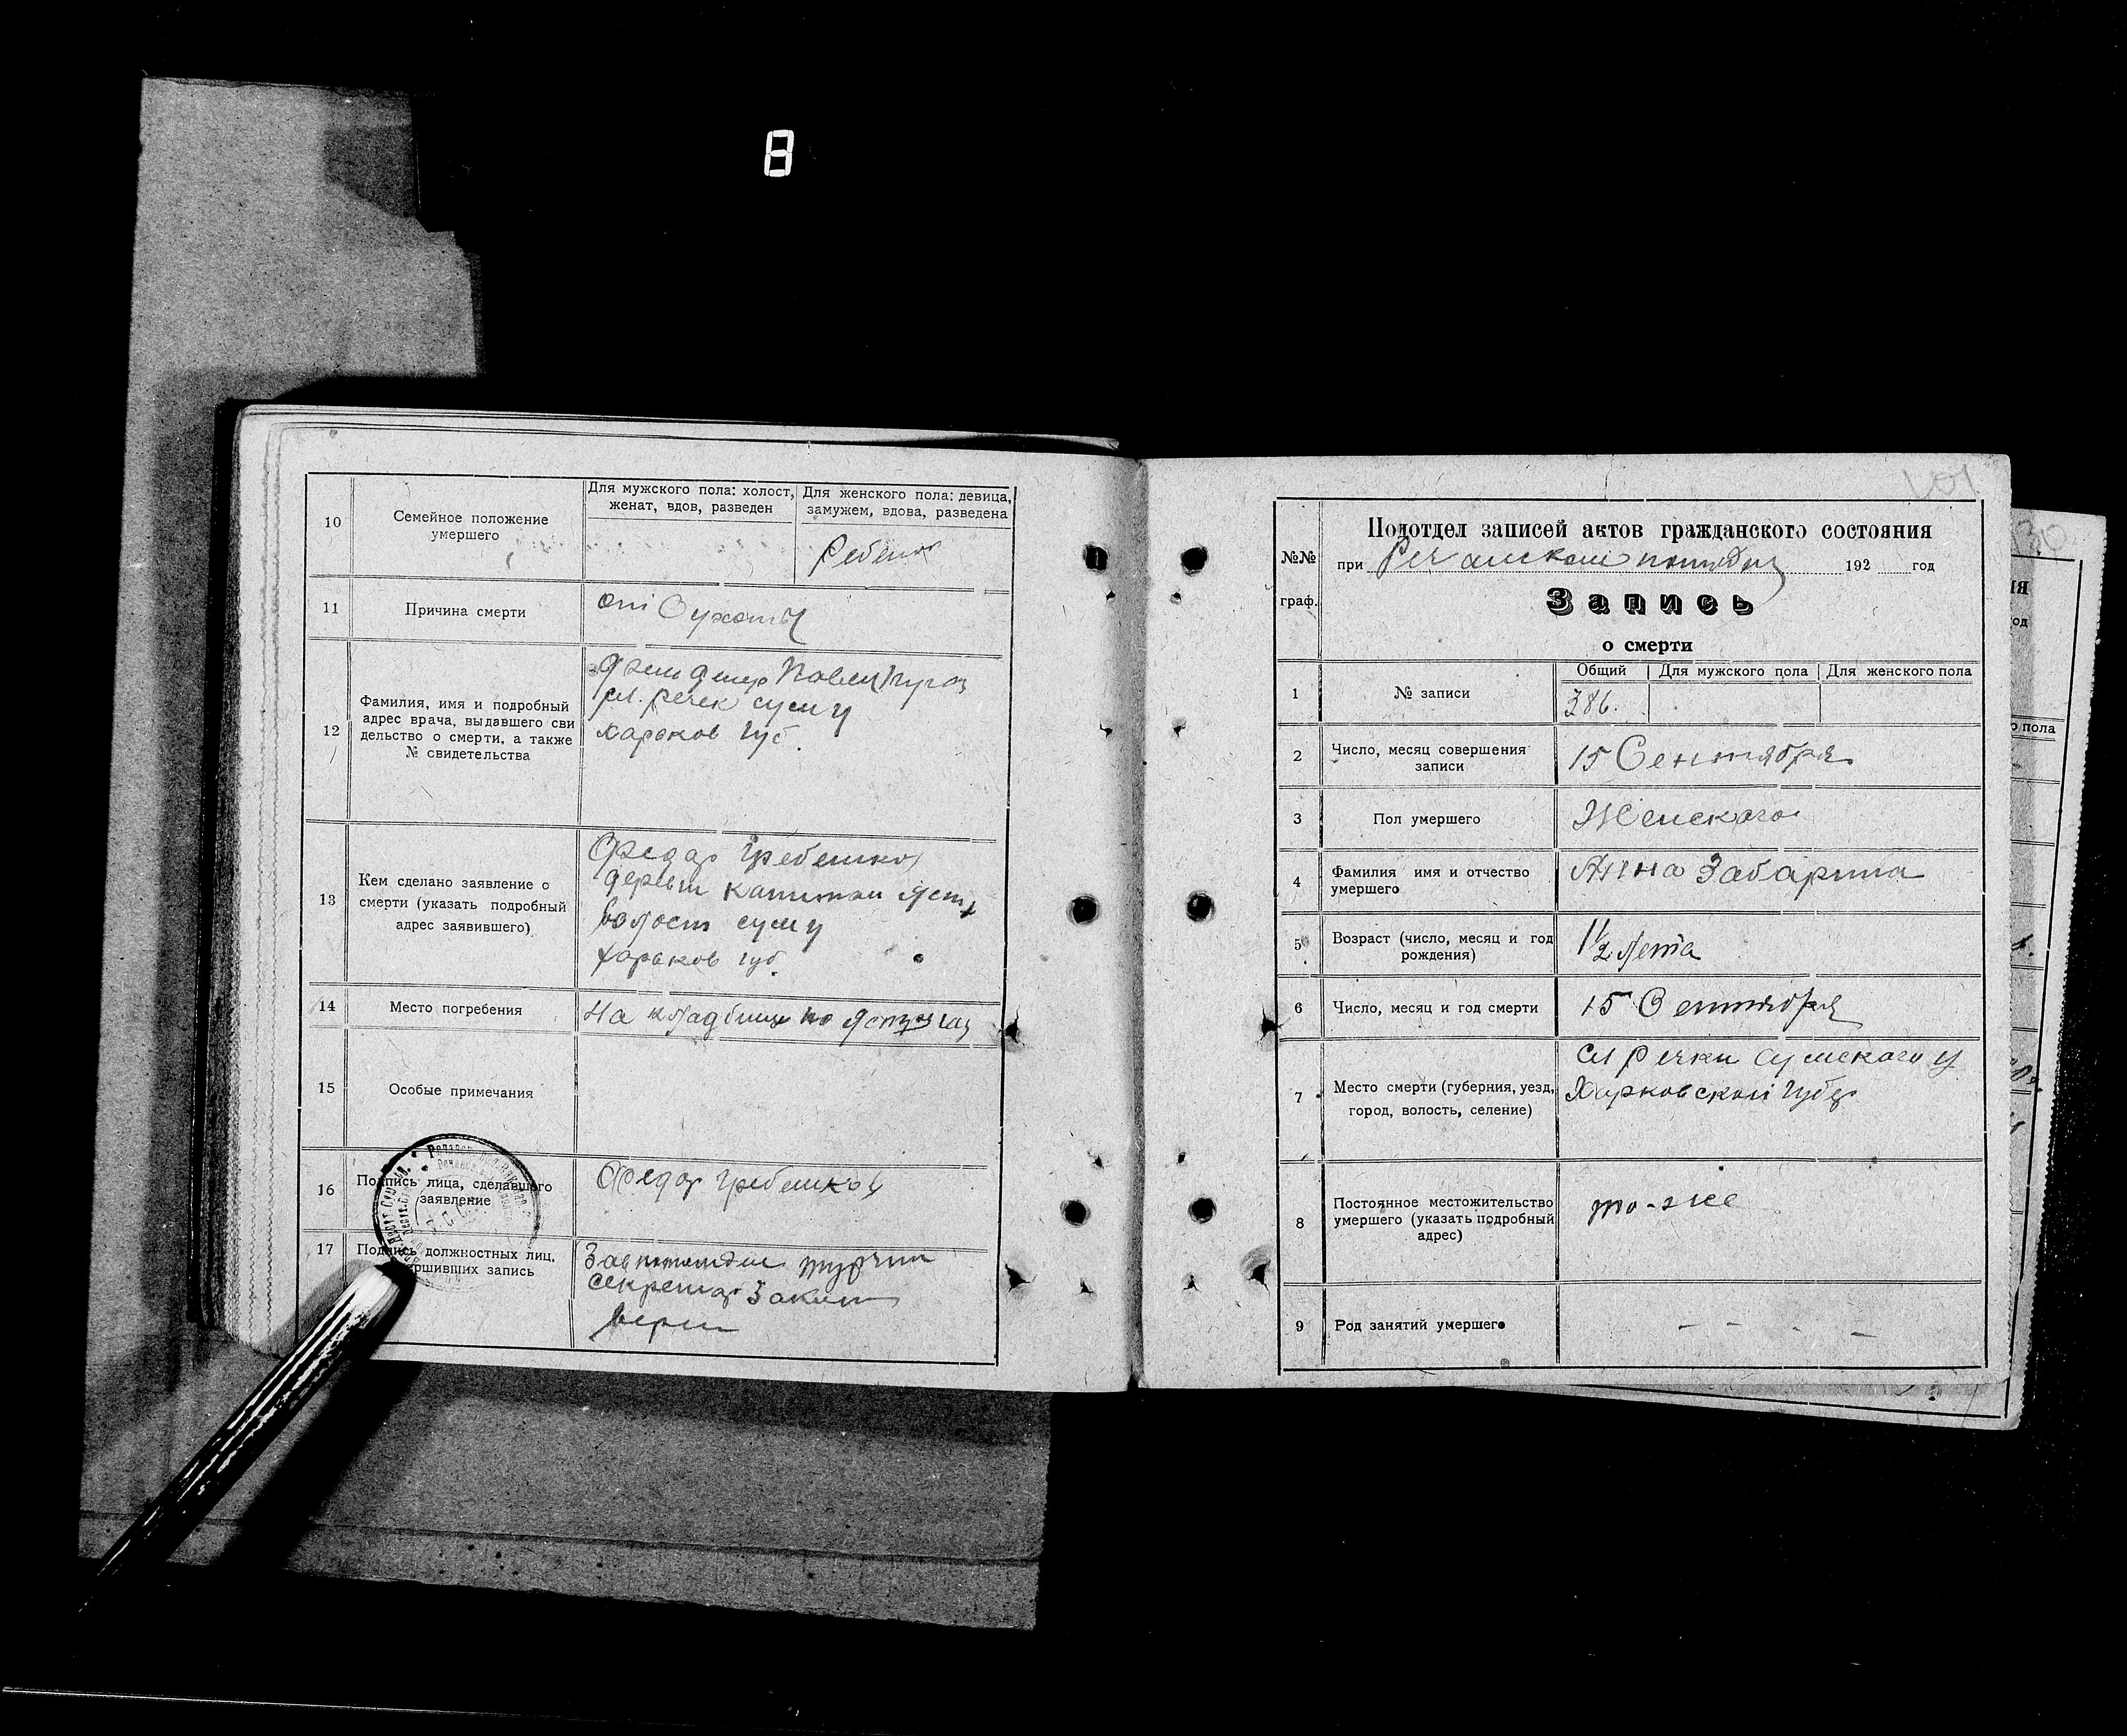 8
10
Семейное положение
умершего
Для мужского пола: холост,
женат, вдов, разведен
Для женского пола: девица,
замужем, вдова, разведена
Ребенок
11
Причина смерти
от Сухоты
12
Фамилия, имя и подробный
адрес врача, выдавшего сви
дельство о смерти, а также
№ свидетельства
Павел
сл. речек сум у
харьков губ.
13
Кем сделано заявление о
смерти (указать подробный
адрес заявившего)
Федор Гребешков
дерев
волост сум у
харьков губ.
14
Место погребения
На кладбище
15
Особые примечания
16
Подпись лица, сделавшего
заявление
Федор Гребешков
17
Подпись должностных лиц,
ршивших запись
Завподотдел
секретар
верн
101
№№
граф.
Подотдел записей актов гражданского состояния
при 192 год
Запись
о смерти
1
№ записи
Общий
Для мужского пола
Для женского пола
386.
2
Число, месяц совершения
записи
15 Сентября
3
Пол умершего
Женскаго
4
Фамилия имя и отчество
умершего
Анна Забарина
5
Возраст (число, месяц и год
рождения)
1½ лета
6
Число, месяц и год смерти
15 Сентября
7
Место смерти (губерния, уезд,
город, волость, селение)
сл Речки сумскаго у
Харковской губер
8
Постоянное местожительство
умершего (указать подробный
адрес)
то-же
9
Род занятий умершего
- - - -
30
ия
од
о пола